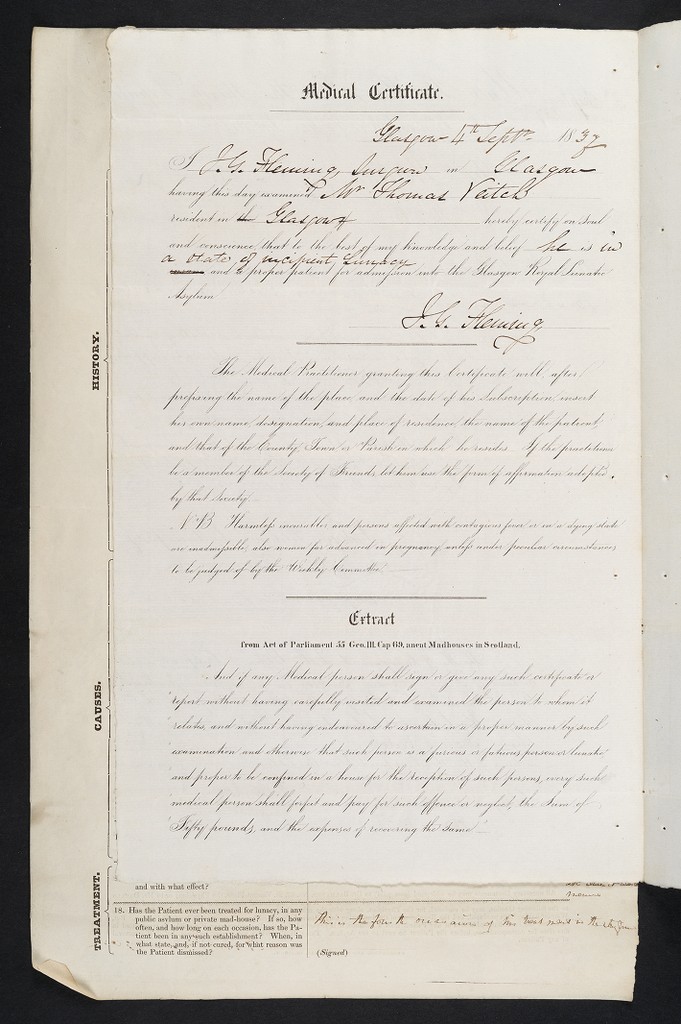 Medical Certificate.
Glasgow 4th Septr. 1837
I J. G. Fleming, Surgeon in Glasgow
having this day examined Mr Thomas Veitch
resident in Glasgow hereby certify on soul
and conscience, that to the best of my knowledge and belief he is in
a state of incipient Lunacy
and a proper patient for admission into the Glasgow Royal Lunatic
Asylum
J. G. Fleming
The Medical Practitioner granting this Certificate will, after
prefixing the name of the place and the date of his Subscription, insert
his own name, designation, and place of residence, the name of the patient,
and that of the County, Town or Parish in which he resides. If the practitioner
be a member of the Society of Friends, let him use the form of affirmation adopted
by that Society.
NB Harmless incurables and persons affected with contagious fever or in a dying state
are inadmissible, also women far advanced in pregnancy, unless under peculiar circumstances
to be judged of by the Weekly Committee.
Extract
from Act of Parliament 55 Geo. III. Cap 69, anent Madhouses in Scotland.
And if any Medical person shall sign or give any such certificate or
report without having carefully visited and examined the person to whom it
relates, and without having endeavoured to ascertain in a proper manner by such
examination and otherwise that such person is a furious or fatuous person or lunatic
and proper to be confined in a house for the reception of such persons, every such
medical person shall forfeit and pay for such offence or neglect, the Sum of
Fifty pounds, and the expenses of recovering the same
HISTORY.
CAUSES.
TREATMENT.
and with what effect?
18. Has the Patient ever been treated for lunacy, in any
public asylum or private mad-house? If so, how
often, and how long on each occasion, has the Pa-
tient been in any such establishment? When, in
what state, and, if not cured, for what reason was
the Patient dismissed?
this is the of in the
(Signed)